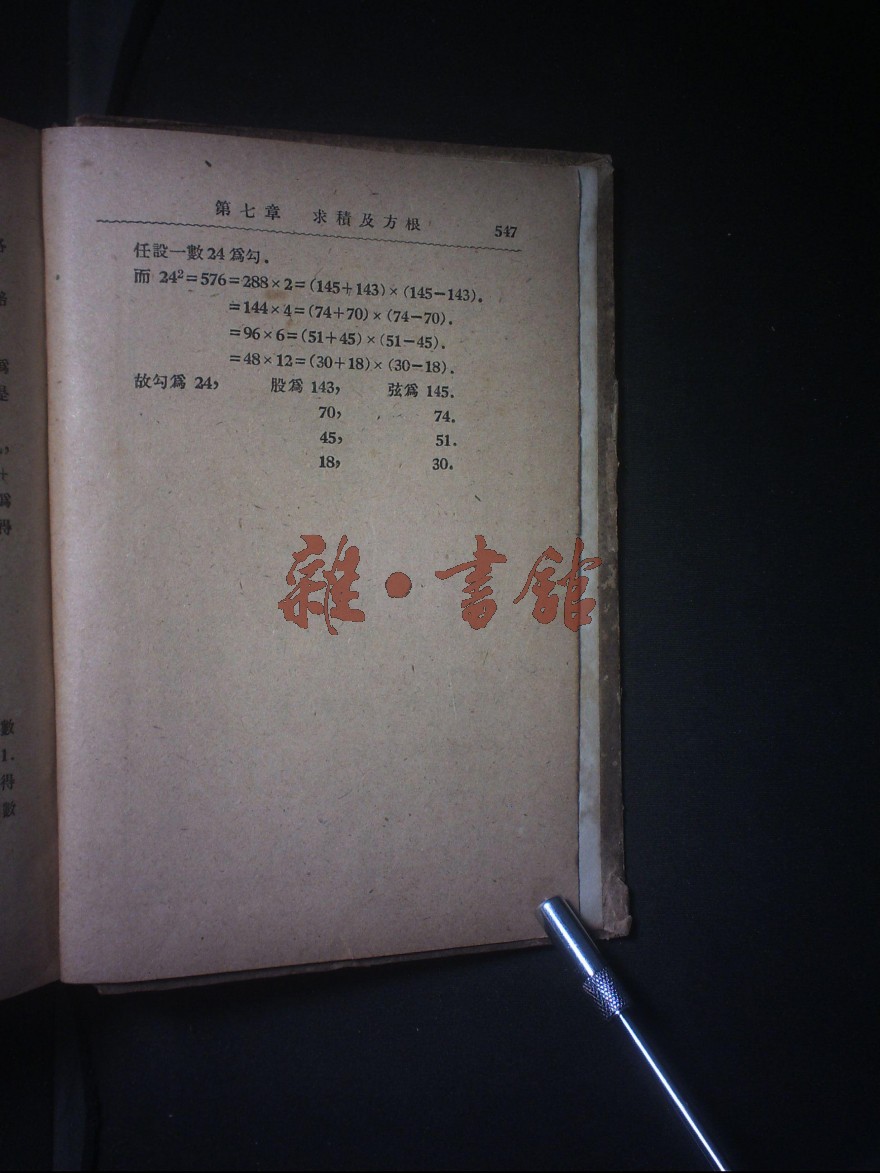 第七章 求積及方根 547
任設一數24爲勾.
而 24²=576=288×2=(145+143)×(145−143).
=144×4=(74+70)×(74−70).
=96×6=(51+45)×(51−45).
=48×12=(30+18)×(30−18).
故勾爲 24, 股爲 143, 弦爲 145.
70, 74.
45, 51.
18, 30.
雜·書館
爲
是
+
爲
得
數
1.
得
數